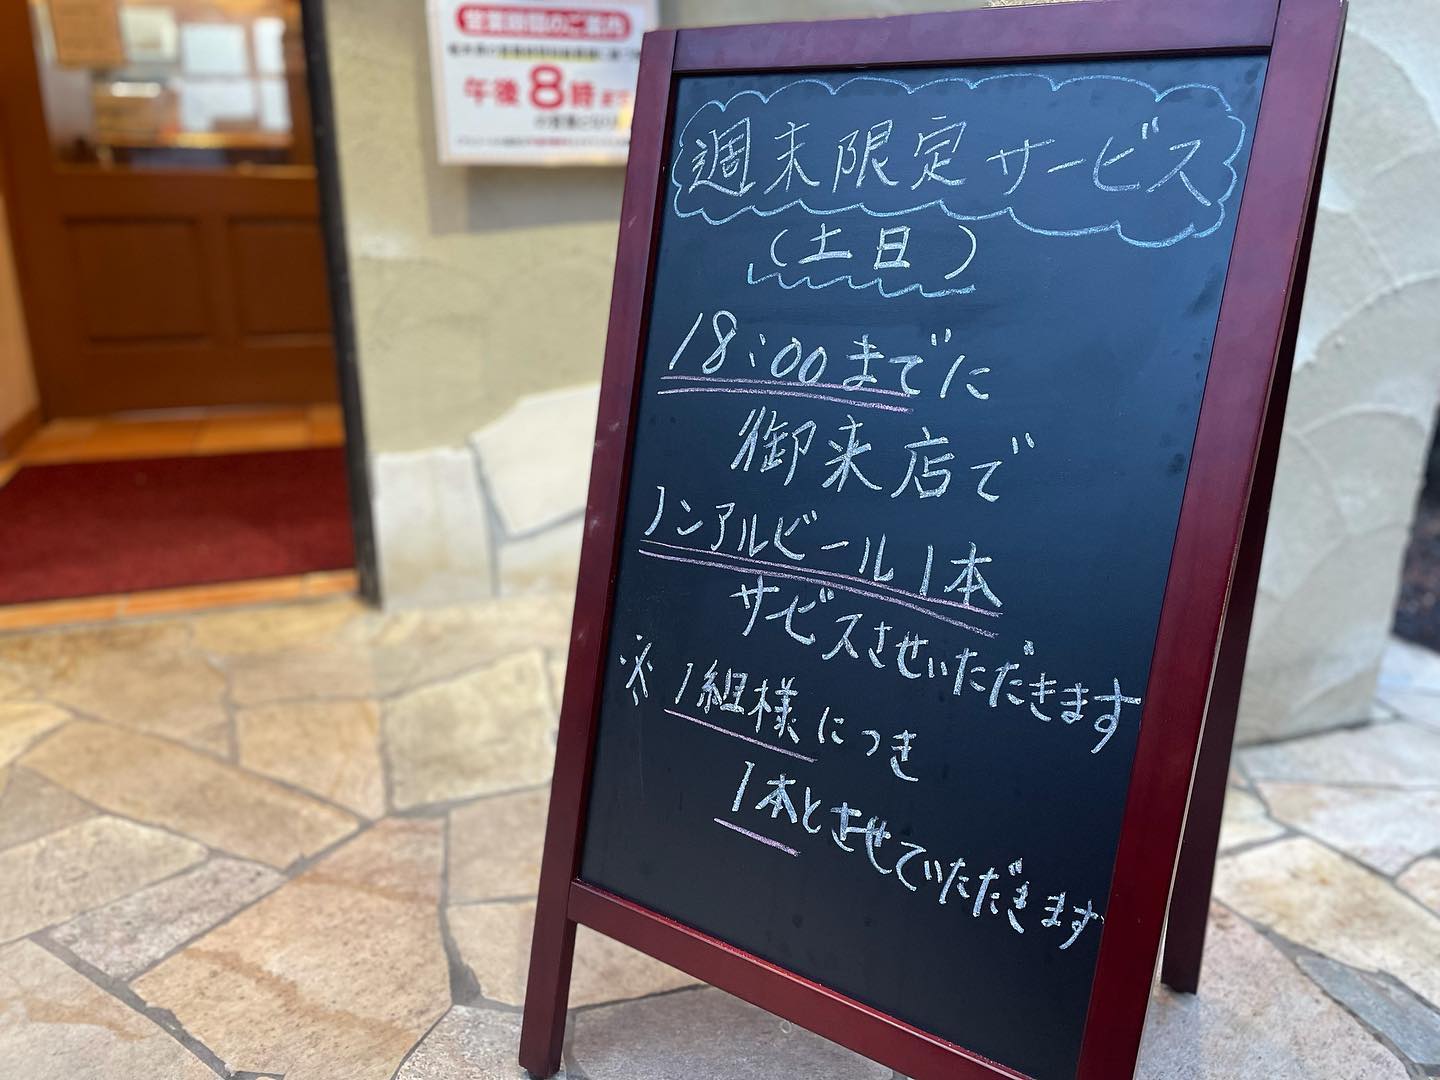 営業時間のご案内
午後8時まで
週末限定サービス
(土日)
18:00までに
御来店で
ノンアルビール1本
サービスさせいただきます
※1組様につき
1本とさせていただきます